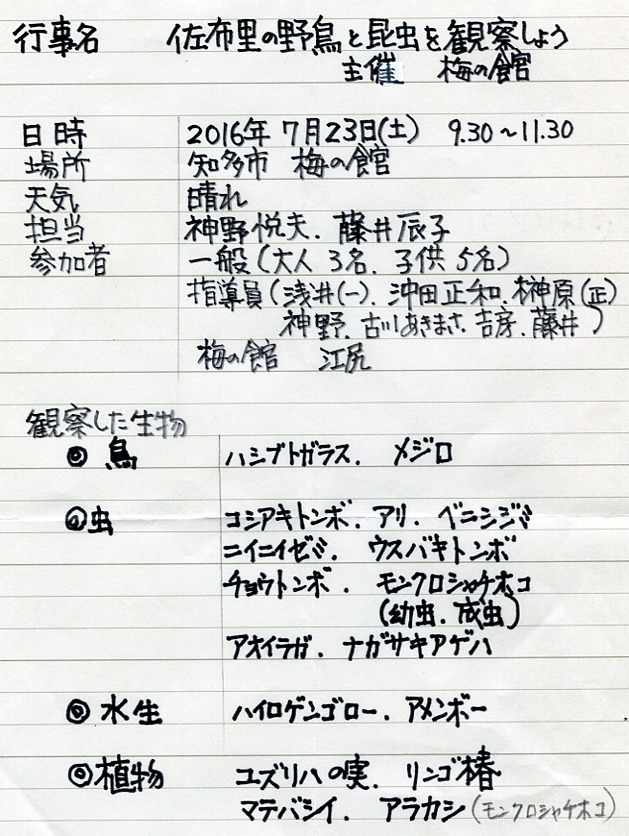 行事名 佐布里の野鳥と昆虫を観察しよう
主催 梅の館
日時 2016年 7月23日(土) 9.30~11.30
場所 知多市 梅の館
天気 晴れ
担当 神野悦夫. 藤井辰子
参加者 一般(大人 3名. 子供 5名)
指導員(浅井(一). 沖田正和. 榊原(正)
神野. 古川あきまさ. 吉房. 藤井)
梅の館 江尻
観察した生物
◎ 鳥 ハシブトガラス. メジロ
◎虫 コシアキトンボ. アリ. ベニシジミ
ニイニイゼミ. ウスバキトンボ
チョウトンボ. モンクロシャチホコ
(幼虫. 成虫)
アオイラガ. ナガサキアゲハ
◎ 水生 ハイロゲンゴロー. アメンボー
◎植物 ユズリハの実. リンゴ椿
マテバシイ. アラカシ(モンクロシャチホコ)